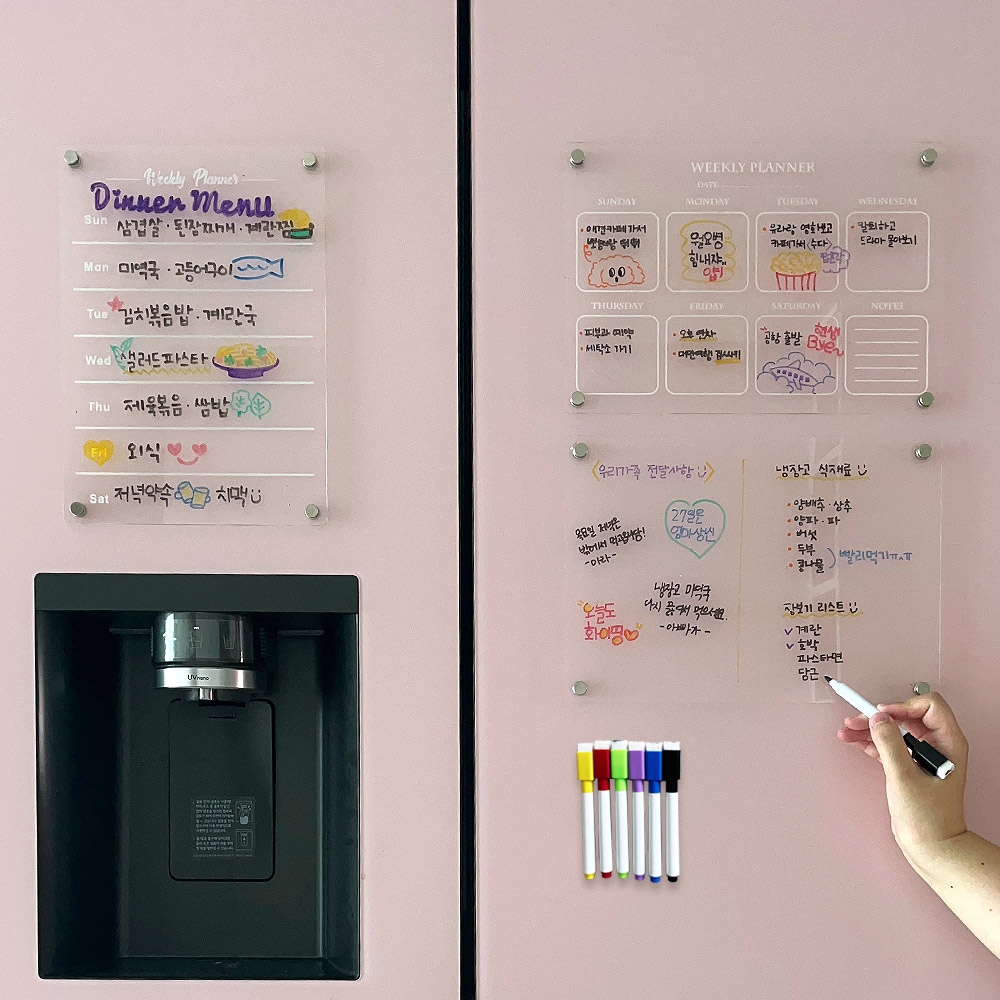 Weekly Planner
Dinner Menu
Sun 삼겹살 · 된장찌개 · 계란찜
Mon 미역국 · 고등어구이
Tue 김치볶음밥 · 계란국
Wed 샐러드파스타
Thu 제육볶음 · 쌈밥
Fri 외식
Sat 저녁약속 치맥
UVnano
WEEKLY PLANNER
DATE
SUNDAY
MONDAY
TUESDAY
WEDNESDAY
• 애견카페 가서
월요병
힘내쟈..
• 유라랑 영화보고
카페가서 (수다)
• 칼퇴하고
드라마 몰아보기
THURSDAY
FRIDAY
SATURDAY
NOTES
• 피부과 예약
• 세탁소 가기
• 오후 연차
• 대만여행 짐싸기
공항 출발
현생
Bye~
우리가족 전달사항
목요일 저녁은
밖에서 먹고옵니당!
-미라-
27일은
엄마생신
오늘도
화이띵
냉장고 미역국
다시 끓여서 먹으세요.
-아빠가-
냉장고 식재료
• 양배추 · 상추
• 양파 · 파
• 버섯
• 두부
• 콩나물
빨리먹기ㅠㅠ
장보기 리스트
✓ 계란
✓ 호박
파스타면
당근